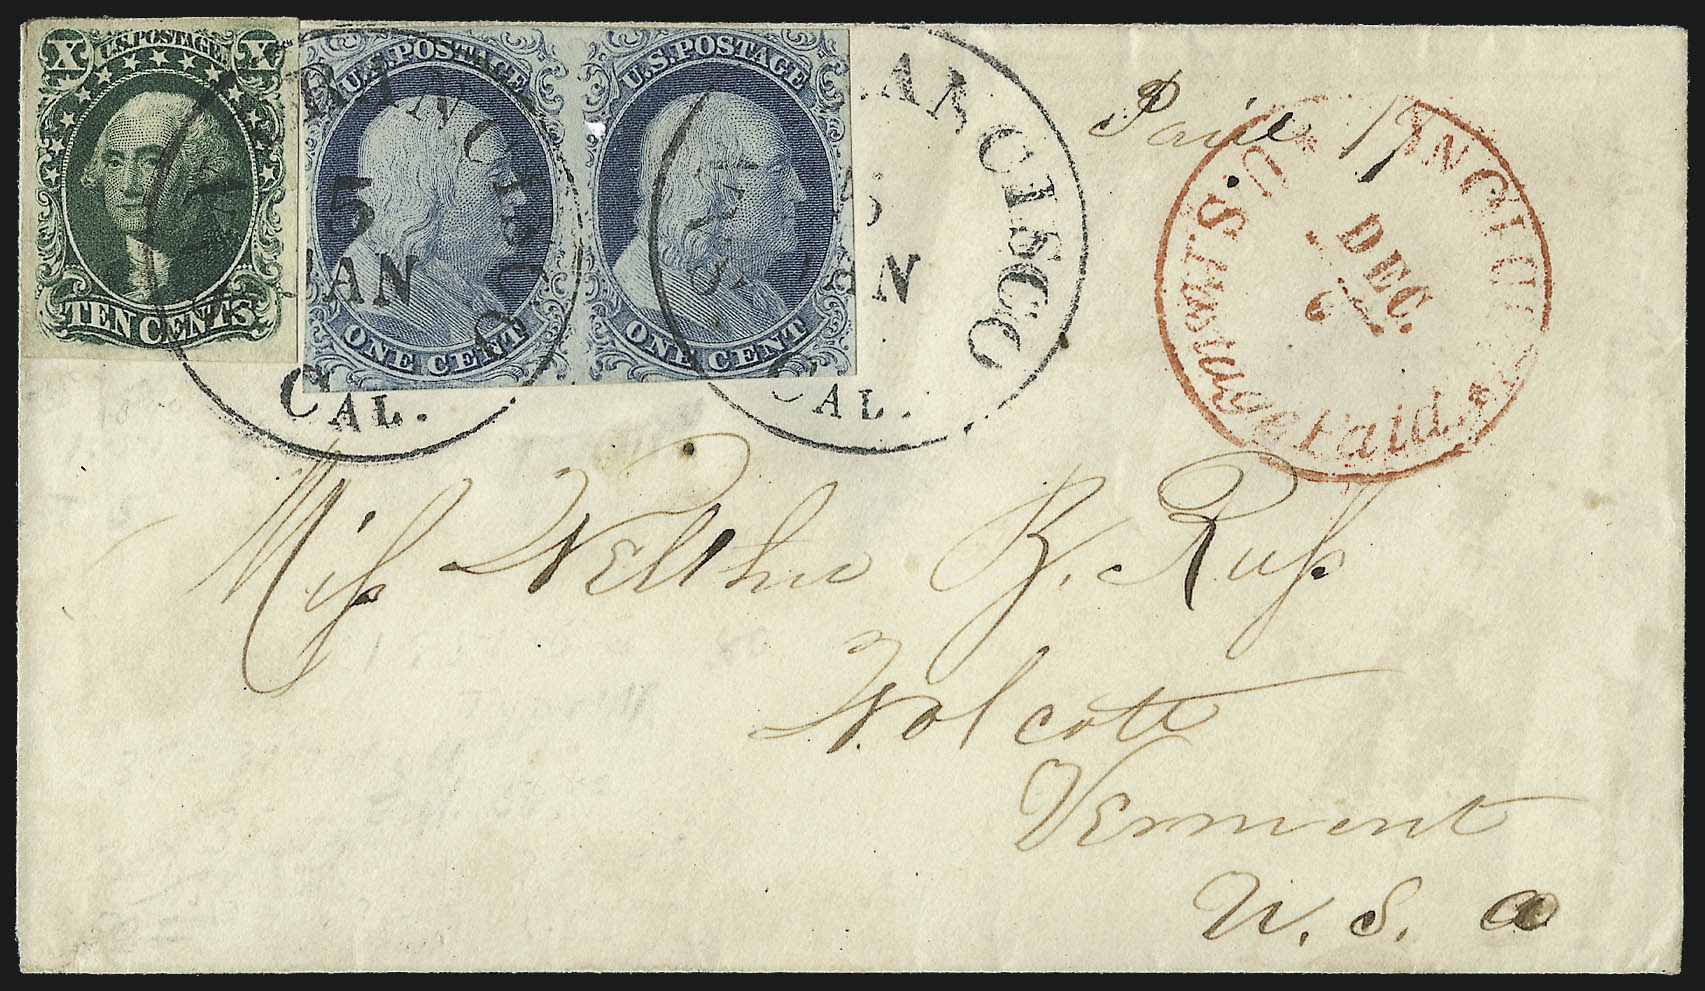 X U.S. POSTAGE X
TEN CENTS
U.S. POSTAGE
ONE CENT
U.S. POSTAGE
ONE CENT
SAN FRANCISCO
5
JAN
CAL.
ANCISCO
5
JAN
CAL.
Paid 17
U.S. Postage Paid.
DEC.
6
Miss Weltha R. Russ
Wolcott
Vermont
U. S. a